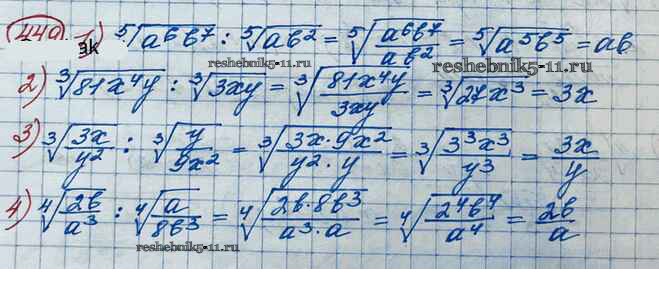 440 1) ⁵√(a⁶b⁷) : ⁵√(ab²) = ⁵√(a⁶b⁷/ab²) = ⁵√(a⁵b⁵) = ab
зк
reshebnik5-11.ru
2) ³√(81x⁴y) : ³√(3xy) = ³√(81x⁴y/3xy) = ³√(27x³) = 3x
reshebnik5-11.ru
3) ³√(3x/y²) : ³√(y/9x²) = ³√(3x·9x²/y²·y) = ³√(3³x³/y³) = 3x/y
4) ⁴√(2b/a³) : ⁴√(a/8b³) = ⁴√(2b·8b³/a³·a) = ⁴√(2⁴b⁴/a⁴) = 2b/a
reshebnik5-11.ru